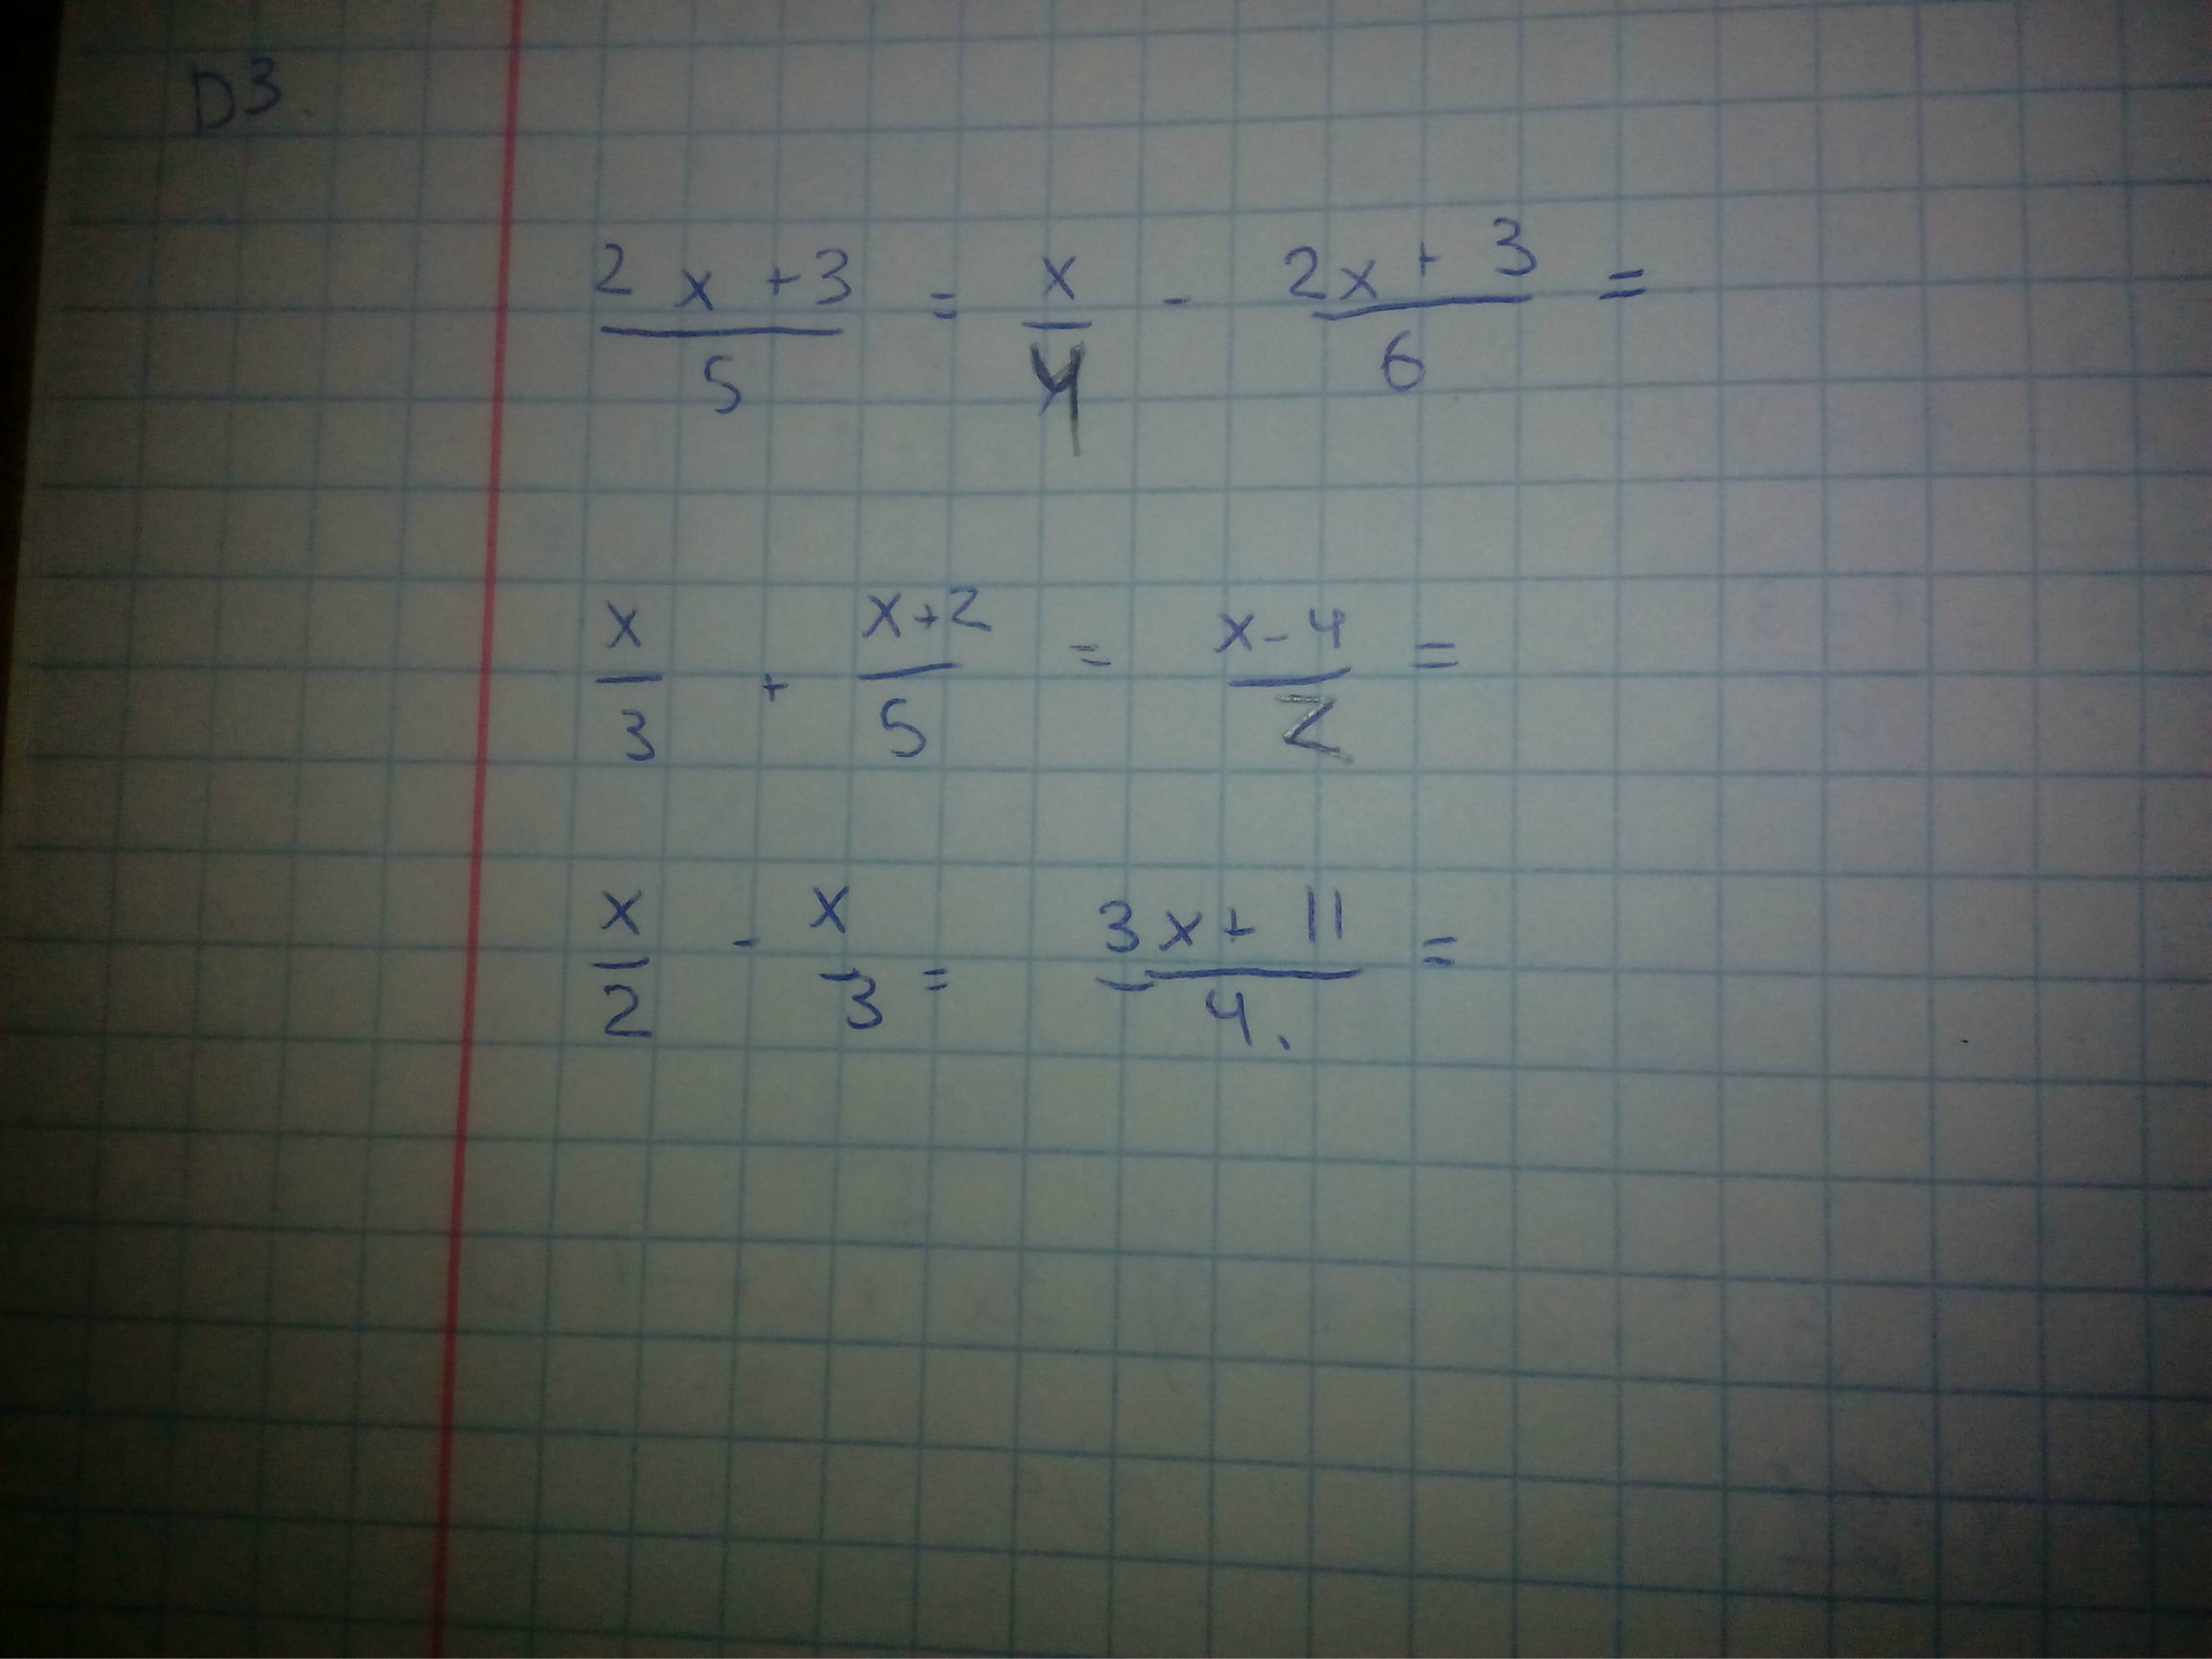 D3.
2x+3/5 = x/4 - 2x+3/6 =
x/3 + x+2/5 = x-4/2 =
x/2 - x/3 = 3x+11/4. =